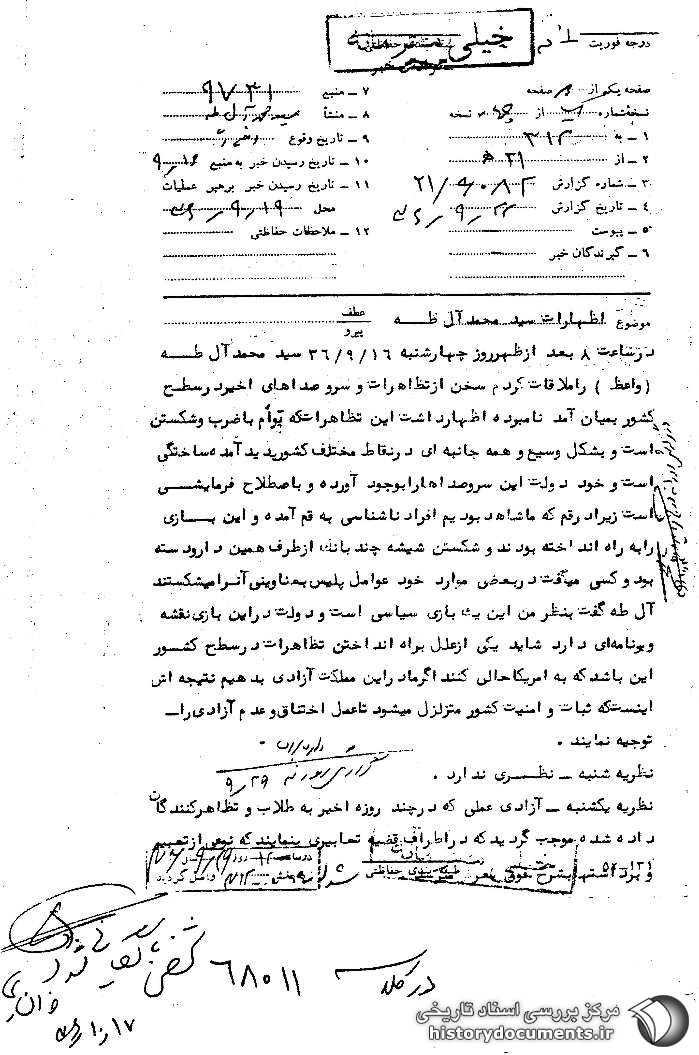 درجه فوریت
خیلی محرمانه
صفحه یکم از صفحه
نسخه شماره از نسخه
۱ ـ به ۳۱۲
۲ ـ از ۲۱ ﻫ
۳ ـ شماره گزارش ۲۱/۹۰۸۲
۴ ـ تاریخ گزارش
۵ ـ پیوست
۶ ـ گیرندگان خبر
۷ ـ منبع ۹۷۳۱
۸ ـ منشأ سید محمد آل طه
۹ ـ تاریخ وقوع
۱۰ ـ تاریخ رسیدن خبر به منبع ۹/۱۶
۱۱ ـ تاریخ رسیدن خبر برهبر عملیات
محل ۹/۱۹
۱۲ ـ ملاحظات حفاظتی
موضوع اظهارات سید محمد آل طه
عطف
پیرو
در ساعت ۸ بعد ازظهر روز چهارشنبه ۳۶/۹/۱۶ سید محمد آل طه
(واعظ) را ملاقات کردم سخن از تظاهرات و سرو صداهای اخیر در سطح
کشور بمیان آمد نامبرده اظهار داشت این تظاهرات که توأم با ضرب و شکستن
است و بشکل وسیع و همه جانبه ای در نقاط مختلف کشور پدید آمده ساختگی
است و خود دولت این سروصداها را بوجود آورده و باصطلاح فرمایشی
است زیرا در قم که ما شاهد بودیم افراد ناشناسی به قم آمده و این بازی
را به راه انداخته بودند و شکستن شیشه چند بانک از طرف همین دارو دسته
بود و کسی میگفت در بعضی موارد خود عوامل پلیس به عناوینی آنرا میشکستند
آل طه گفت بنظر من این یک بازی سیاسی است و دولت در این بازی نقشه
و برنامه‌ای دارد شاید یکی از علل براه انداختن تظاهرات در سطح کشور
این باشد که به امریکا حالی کنند اگر ما در این مملکت آزادی بدهیم نتیجه اش
اینست که ثبات و امنیت کشور متزلزل میشود تا عمل اختناق و عدم آزادی را ـ
توجیه نمایند .
نظریه شنبه ـ نظری ندارد .
۹/۲۹
نظریه یکشنبه ـ آزادی عملی که در چند روزه اخیر به طلاب و تظاهرکنندگان
داده شده موجب گردید که در اطراف قضیه تعابیری بنمایند که نوعی از تعبیر
و برداشتها بشرح فوق
طبقه بندی حفاظتی
واصل گردید
در کلاسه ۶۸۰۱۱
۱۰/۱۷
مرکز بررسی اسناد تاریخی
historydocuments.ir